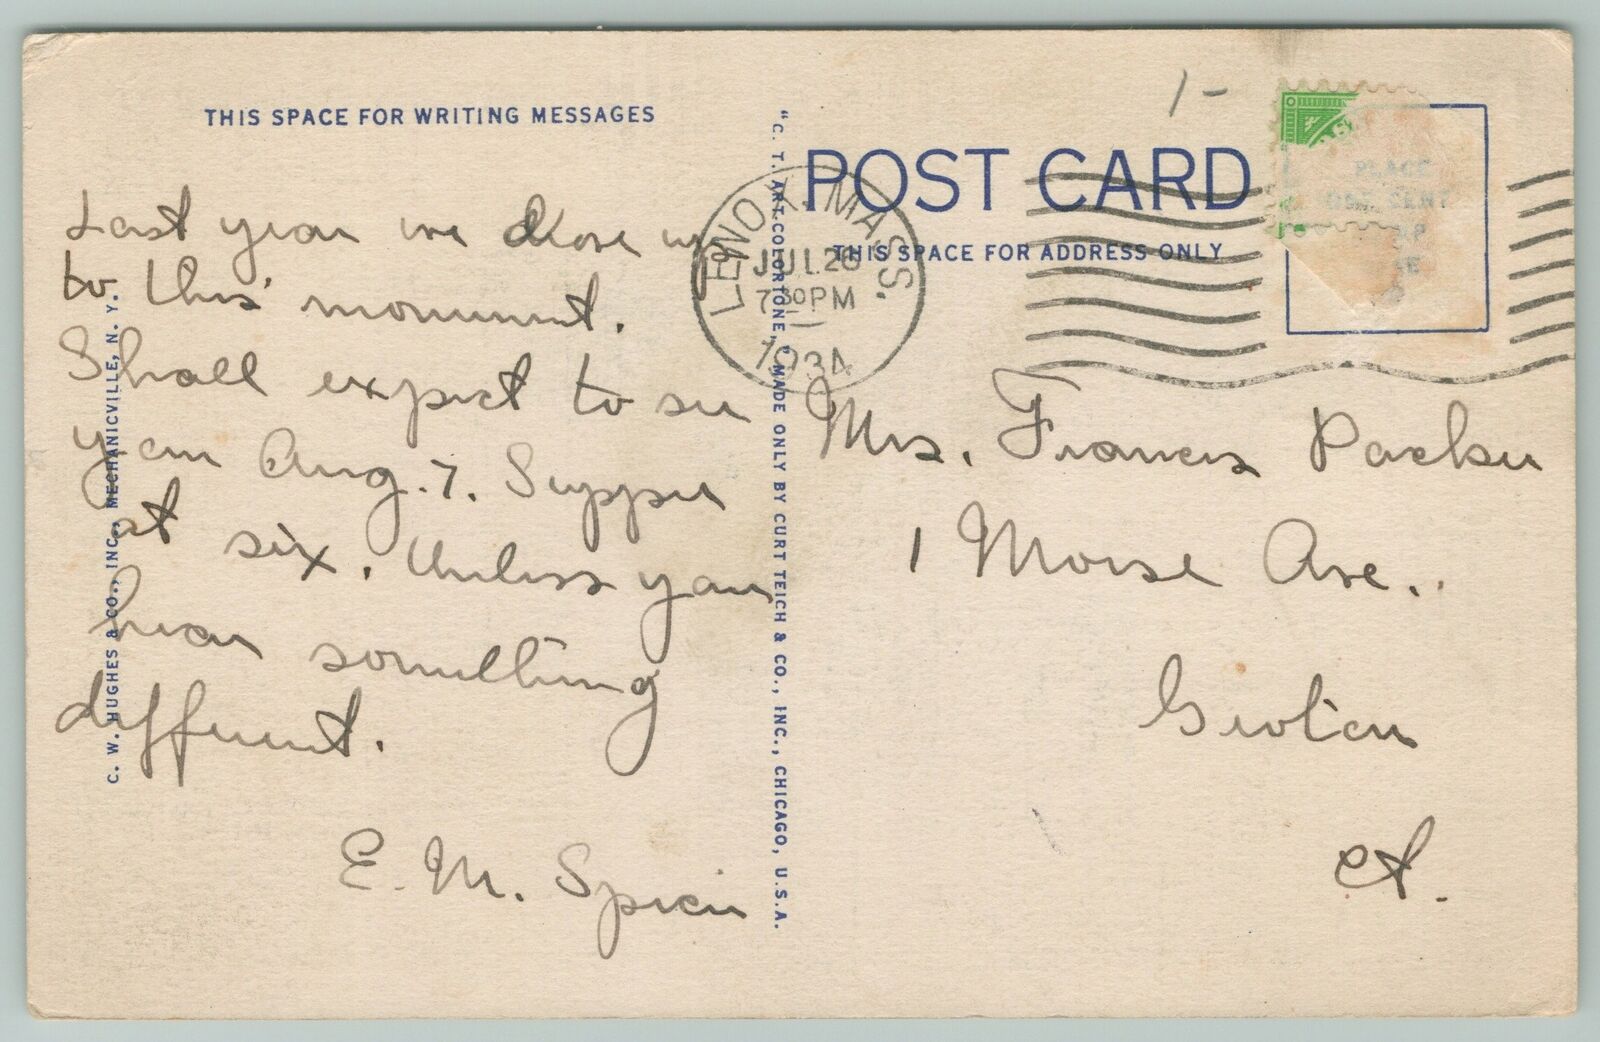 THIS SPACE FOR WRITING MESSAGES
Last year we drove up
to this monument.
Shall expect to see
you Aug. 7. Supper
at six. Unless you
hear something
different.
E. M. Spicer
C. W. HUGHES & CO., INC., MECHANICVILLE, N. Y.
"C. T. ART-COLORTONE," MADE ONLY BY CURT TEICH & CO., INC., CHICAGO, U.S.A.
1-
POST CARD
THIS SPACE FOR ADDRESS ONLY
LENOX. MASS.
JUL 26
7 30 PM
1934
PLACE
ONE CENT
Mrs. Frances Parker
1 Morse Ave.
Groton
Ct.